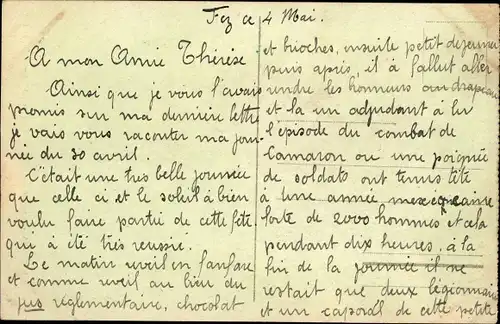 Fez ce 4 Mai.
A mon Amie Thérèse.
Ainsi que je vous l'avais
promis sur ma dernière lettre
je vais vous raconter ma jour
née du 30 avril.
C'était une très belle journée
que celle ci et le soleil à bien
voulu faire partie de cette fête
qui à été très reussie.
Le matin reveil en fanfare
et comme reveil au lieu du
jus réglementaire, chocolat
et brioches, ensuite petit dejeuner
puis après, il à fallut aller
rendre les honneurs au drapeau
et la un adjudant à lu
l'episode du combat de
Camaron ou une poignée
de soldats ont tenus tête
à une année mexicaine
forte de 2000 hommes et cela
pendant dix heures, à la
fin de la journée il ne
restait que deux légionnaires
et un caporal de cette petite